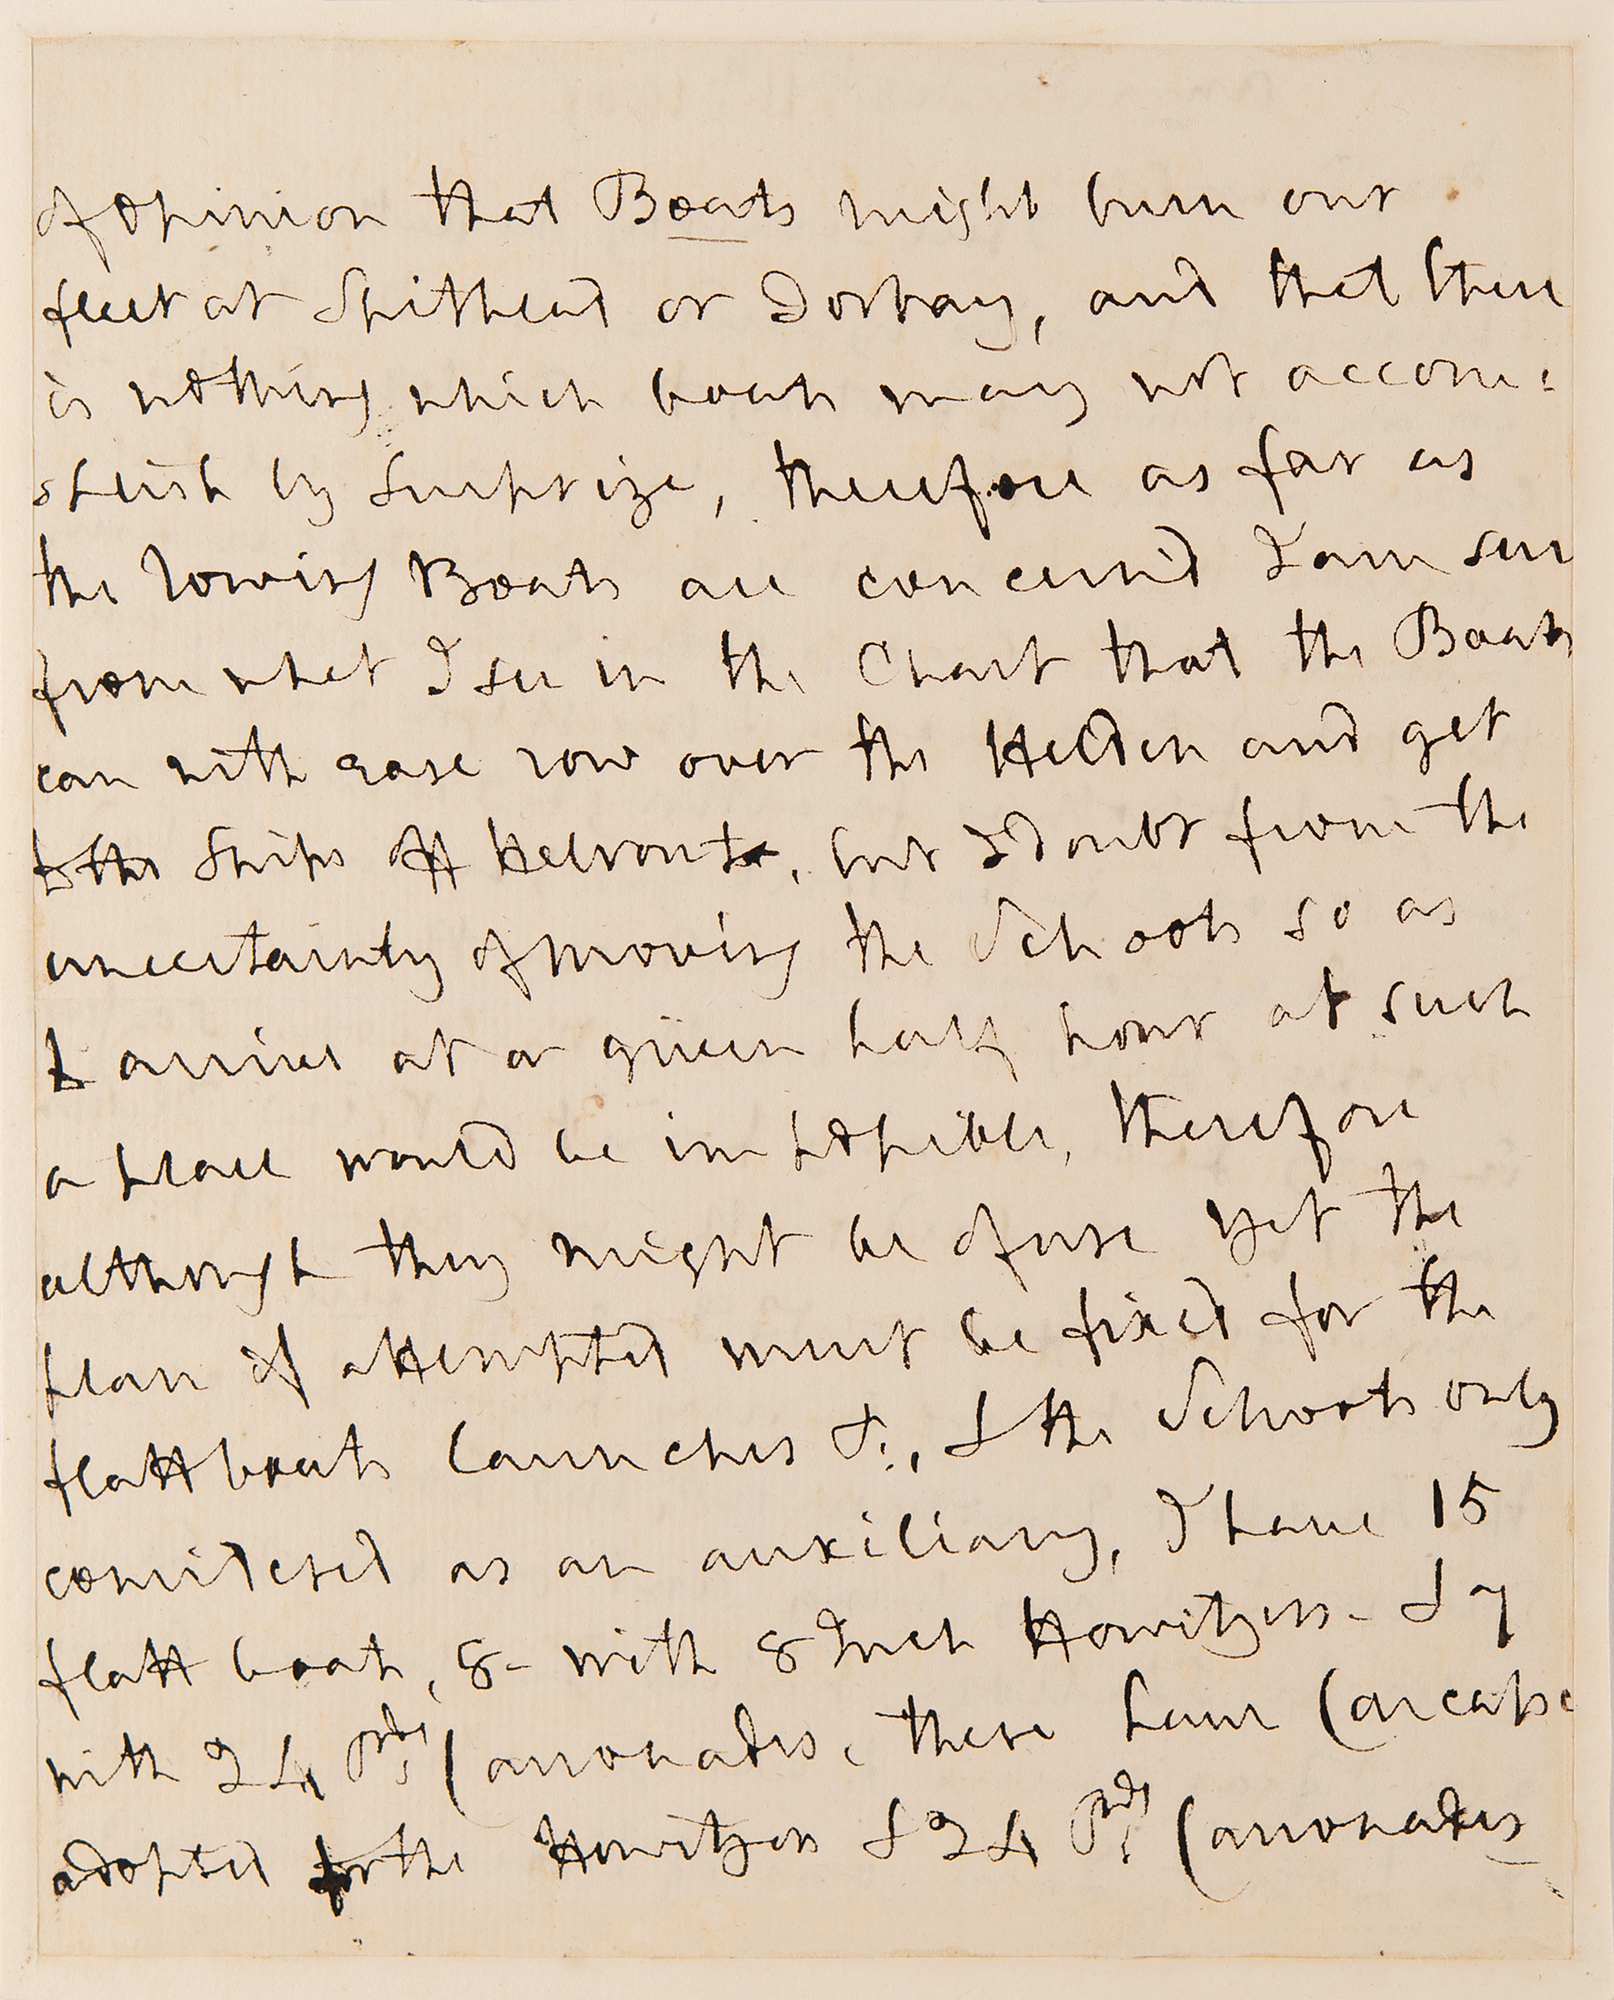 of opinion that Boats might burn our
fleet at Spithead or Torbay, and that there
is nothing which boats may not accom:
plish by surprize, therefore as far as
the rowing Boats are concern'd I am sure
from what I see in the Chart that the Boats
can with ease row over the Helder and get
to the Ships off Helvout, but I doubt from the
uncertainty of moving the Schoots so as
to arrive at a given half hour at such
a place would be impossible, therefore
although they might be of use yet the
plan if attempted must be fixed for the
flatt boats launches &c:, & the Schoots only
considered as an auxiliary, I have 15
flatt boats, 8- with 8 Inch Howitzers- & 7
with 24 Pdrs Carronades, these have Carcasse
adopted for the Howitzers & 24 Pdrs Carronades